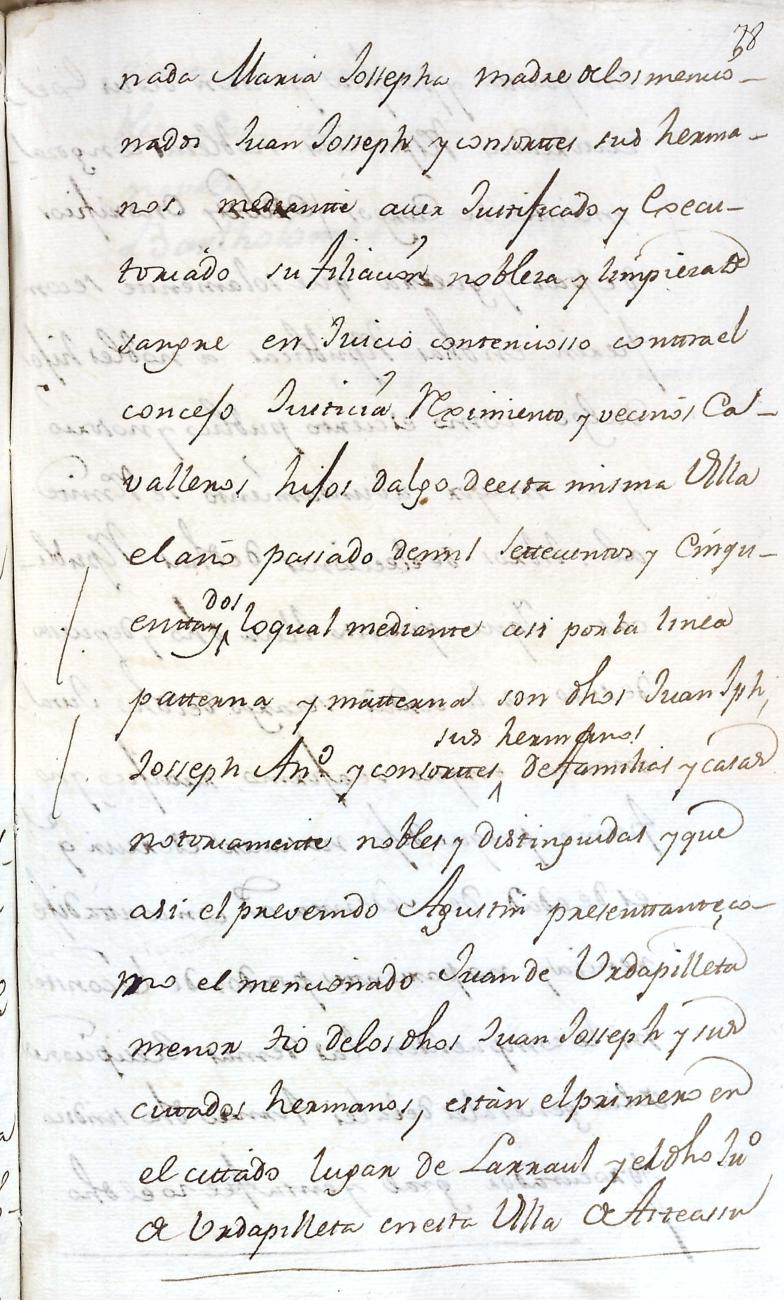 78
nada Maria Jossepha madre de los mencio-
nados Juan Joseph y consorttes sus herma-
nos. mediantte aver Justificado y Execu-
toriado su filiacion nobleza y limpieza de
sangre en Juicio contenciosso conttra el
concejo Justicia Reximiento y vecinos Ca-
valleros hijos dalgo de esta misma Villa
el año passado de mil settecientos y Cinqu-
entta y dos lo qual mediante asi por la linea
patterna y matterna son dhos Juan Jph,
Josseph Anº. y consorttes, sus hermanos de familias y casas
nottoriamentte nobles y distinguidas y que
asi el prevenido Agustin presenttante, co-
mo el mencionado Juan de Urdapilleta
menor tio de los dhos Juan Josseph y sus
cittados hermanos, estàn el primero en
el cittado lugar de Larraul y el dho Juº
de Urdapilleta en esta Villa de Asteassu